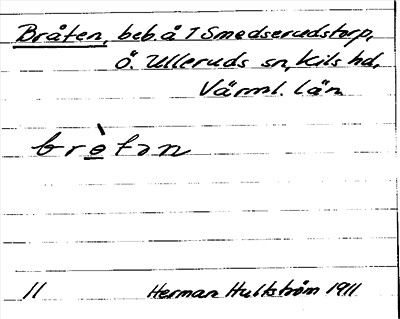 Bråten, beb. å 1 Smedserudstorp,
Ö. Ulleruds sn, Kils hd,
Värml. län
brè̱tan
11 Herman Hultström 1911